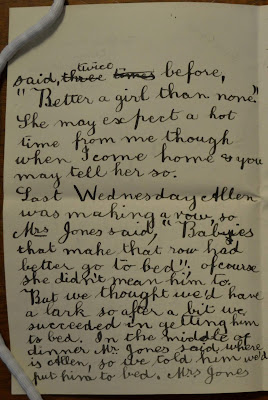 twice
said, three times before,
"Better a girl than none."
She may expect a hot
time from me though
when I come home & you
may tell her so.
Last Wednesday Allen
was making a row, so
Mrs Jones said, "Babyies
that make that row had
better go to bed"! ofcourse
she didn't mean him to.
But we thought we'd have
a lark so after a bit we
succeeded in getting him
to bed. In the middle of
dinner Mr. Jones said where
is Allen, so we told him we'd
put him to bed. Mrs Jones